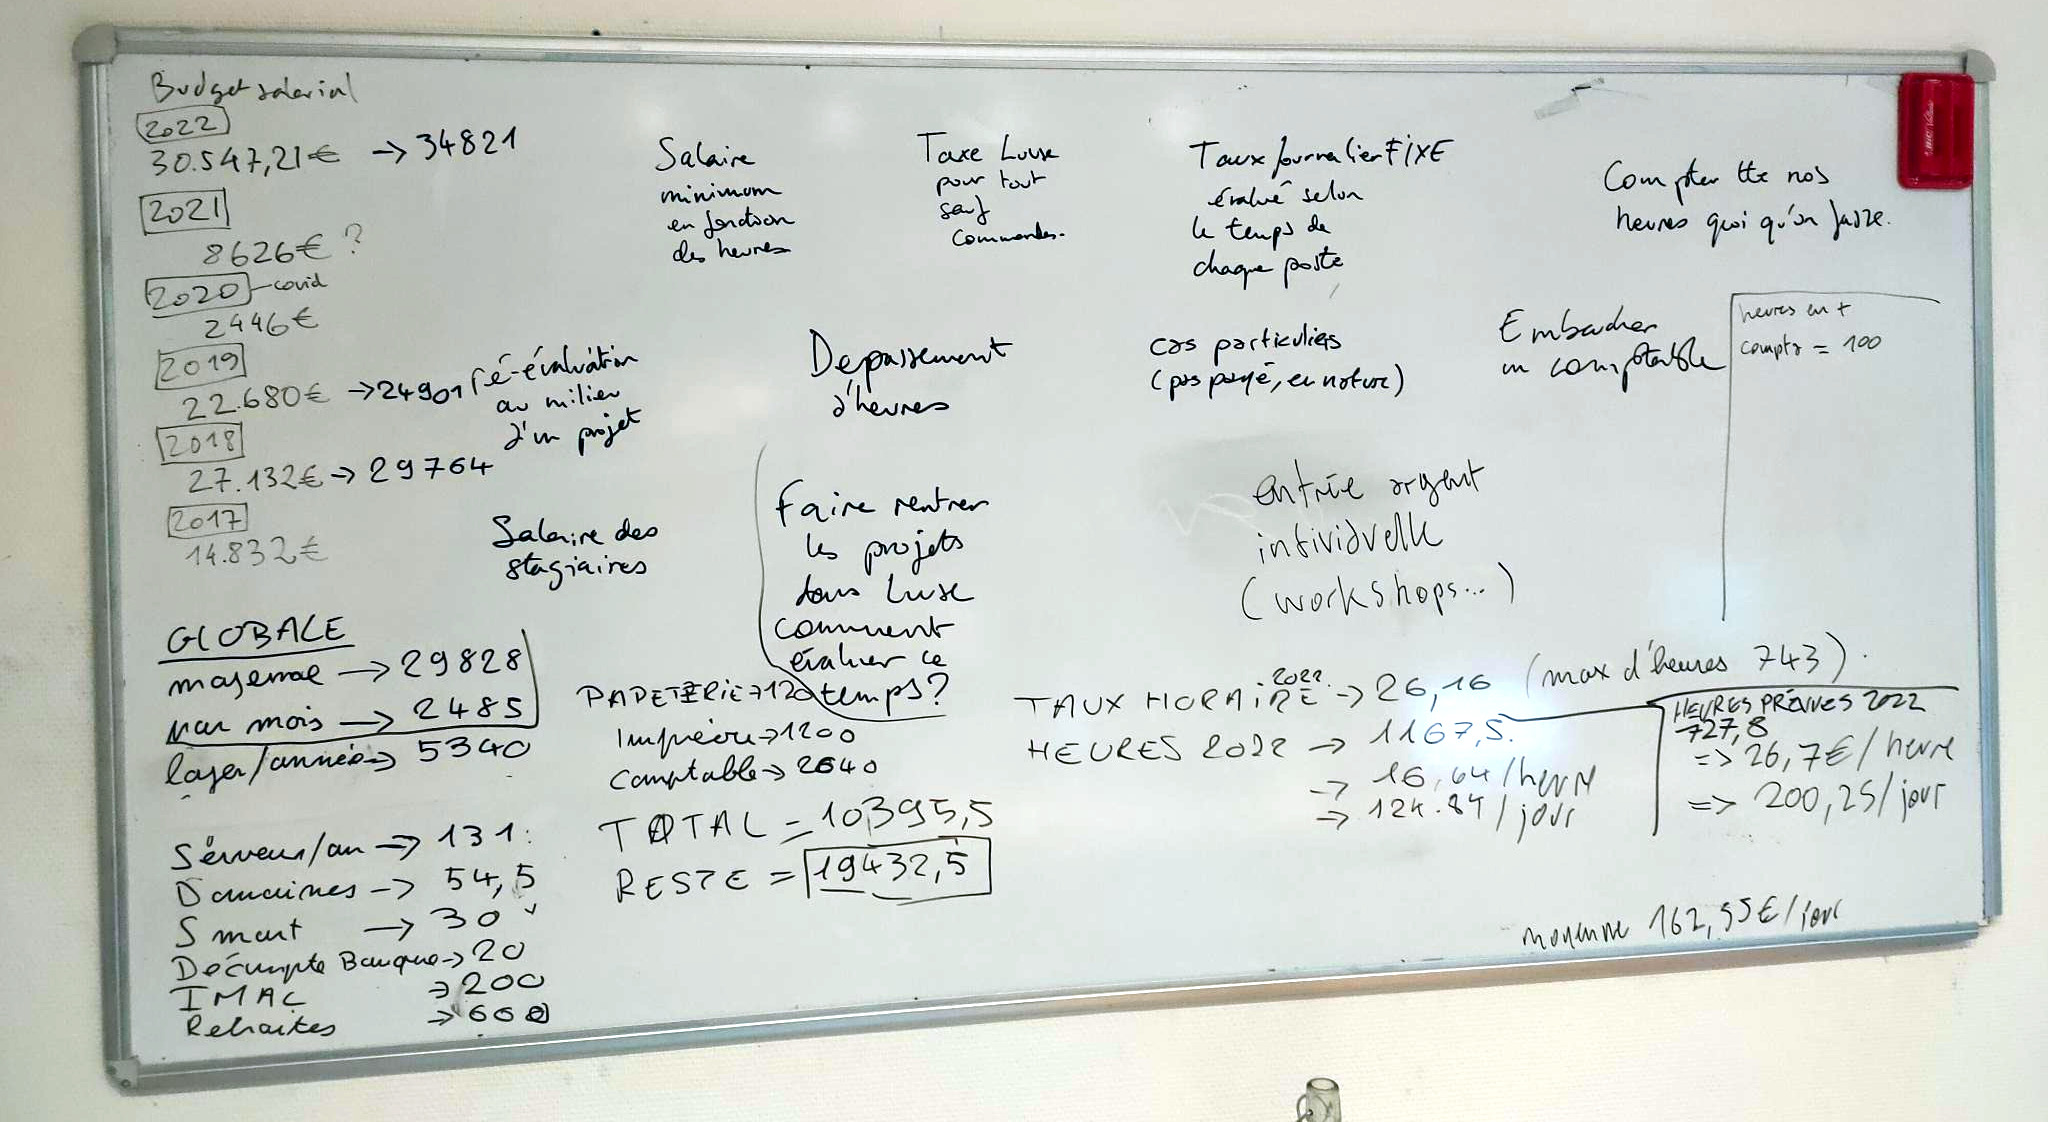 Budget salarial
2022
30.547,21€ → 34821
2021
8626€ ?
2020 - covid
2446€
2019
22.680€ → 24901
2018
27.132€ → 29764
2017
14.832€
ré-évaluation
au milieu
d'un projet
Salaire des
stagiaires
Salaire
minimum
en fonction
des heures
Taxe Luuse
pour tout
sauf
commandes.
Taux journalier FIXE
évalué selon
le temps de
chaque poste
Compter tte nos
heures quoi qu'on fasse.
Depassement
d'heures
cas particuliers
(pas payé, en nature)
Embaucher
un comptable
heures en +
compta = 100
Faire rentrer
les projets
dans Luuse
comment
évaluer ce
temps?
entrée argent
individuelle
(workshops...)
GLOBALE
moyenne → 29828
par mois → 2485
loyer/année → 5340
Serveur/an → 131
Domaines → 54,5
Smart → 30
Décompte Banque → 20
IMAC → 200
Retraites → 600
PAPETERIE → 120
Imprimeur → 1200
Comptable → 2640
TOTAL = 10395,5
RESTE = 19432,5
TAUX HORAIRE 2022 → 26,16 (max d'heures 743).
HEURES 2022 → 1167,5.
→ 16,64/heure
→ 124.84/jour
HEURES PRÉVUES 2022
727,8
=> 26,7€/heure
=> 200,25/jour
moyenne 162,55€/jour